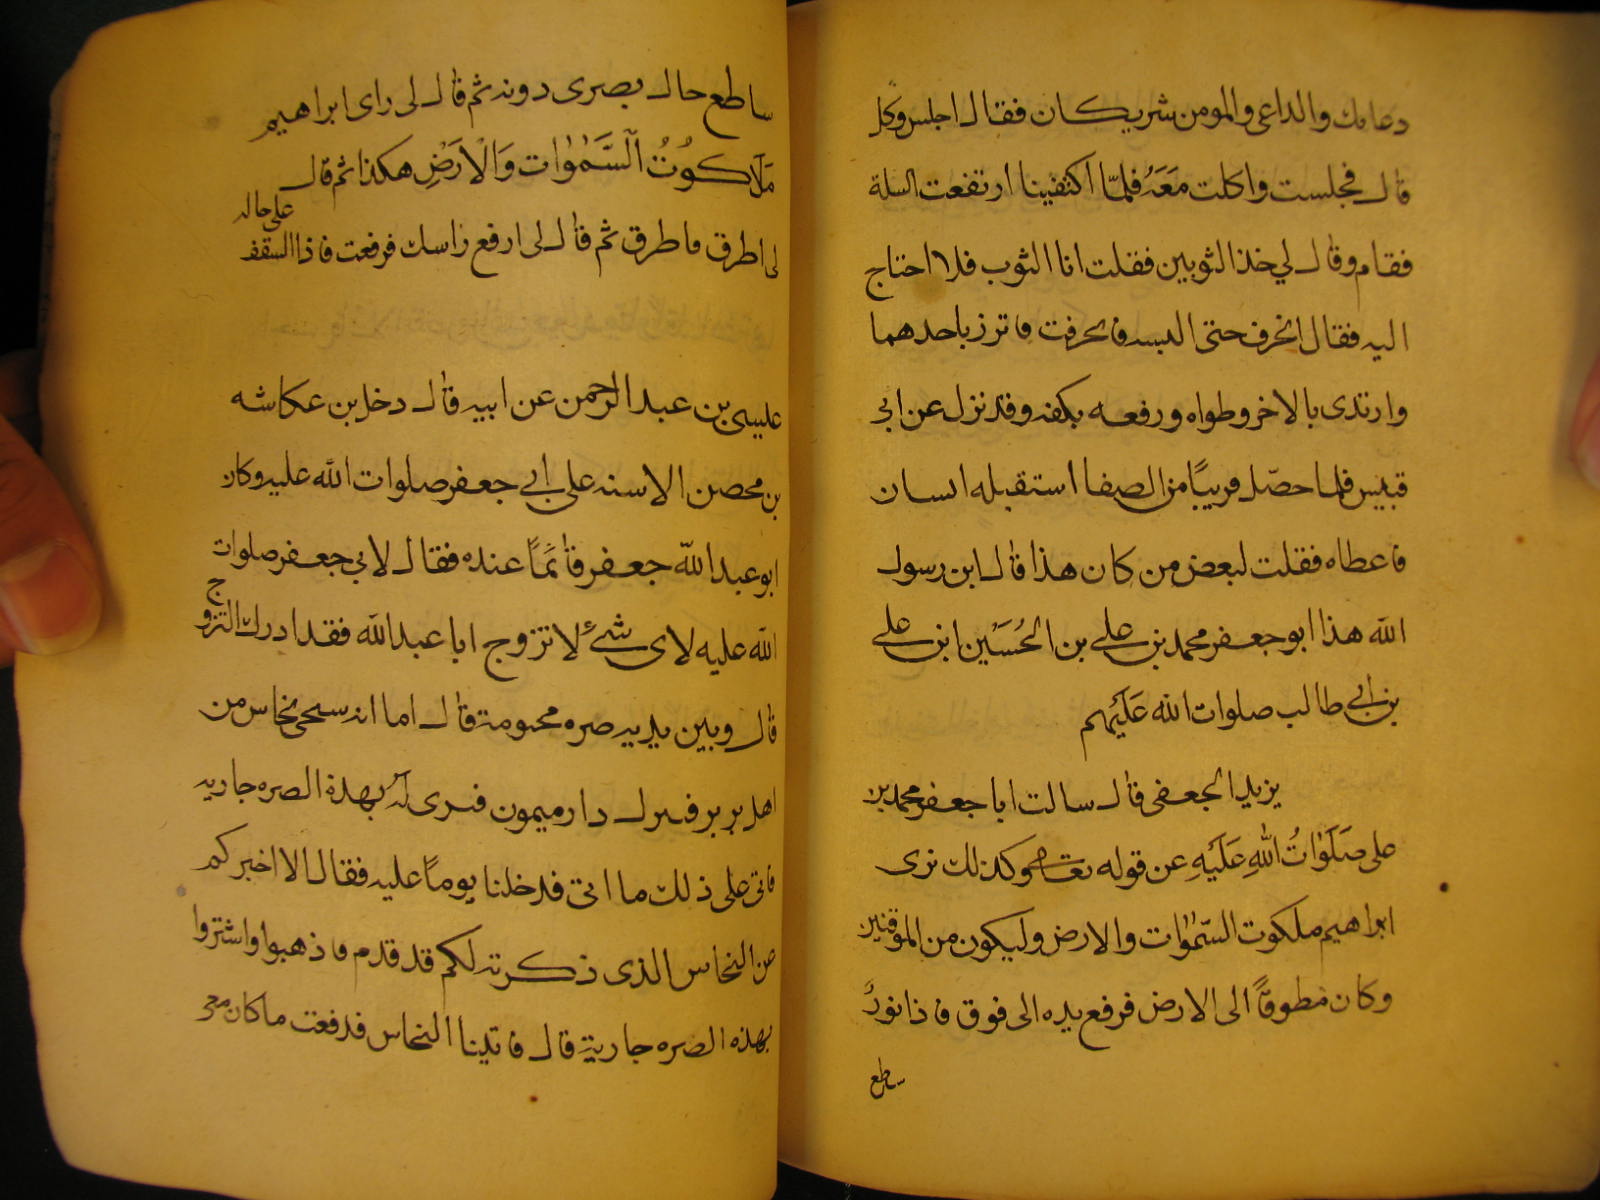 دعايك والداعى والمومن شريكان فقال اجلس وكل
قال فجلست واكلت مَعَهُ فلمّا اكتفينا ارتفعت السلة
فقام وقال لي خذ الثوبين فقلت انا الثوب فلا احتاج
اليه فقال انحرف حتى البسه فانحرفت فاتزر باحدهما
وارتدى بالاخر وطواه ورفعه بكفه وقد نزل عن ابى
قبيس فلما حصّل قريبًا من الصفا استقبله انسان
فاعطاه فقلت لبعض من كان هذا قال ابن رسول
الله هذا ابو جعفر محمد بن على بن الحُسَين ابن على
بن ابي طالب صلوات الله عَلَيهم
يزيد الجعفى قال سالت ابا جعفر محمد بن
على صَلَوٰاتُ اللهِ عَلَيَهِ عن قوله تعا وكذلك نرى
ابراهيم ملكوت السّمٰوٰات والارض وليكون من الموقنين
وكان مطوقًا الى الارض فرفع يده الى فوق فاذا نورٌ
ساطع
ساطع حال بصرى دونه ثم قال لى راى ابراهيم
مَلَكُوتُ اَلْسَّمٰوٰات وَالْاَرَضِ هكذا ثم قال
على حاله
لى اطرق فاطرق ثم قال لى ارفع راسك فرفعت فاذا السقف
عليسى بن عبد الرحمن عن ابيه قال دخل بن عكاشه
بن محصن الاسنه على ابي جعفر صلوات الله عليه وكان
ابو عبد الله جعفر قائمًا عنده فقال لابي جعفر صلوات
الله عليه لاى شئ لا تزوج ابا عبد الله فقد ادرك التزوج
قال وبين يديه صره مختومة قال اما انه سيجى نخاس من
اهل بربر فينزل دار ميمون فنرى له بهذة الصره جاريه
فاتى على ذلك ما اتى فدخلنا يومًا عليه فقال الا اخبركم
عن النخاس الذى ذكرته لكم قد قدم فاذهبوا واشتروا
بهذه الصره جارية قال فاتينا النخاس فدفعت ما كان معى